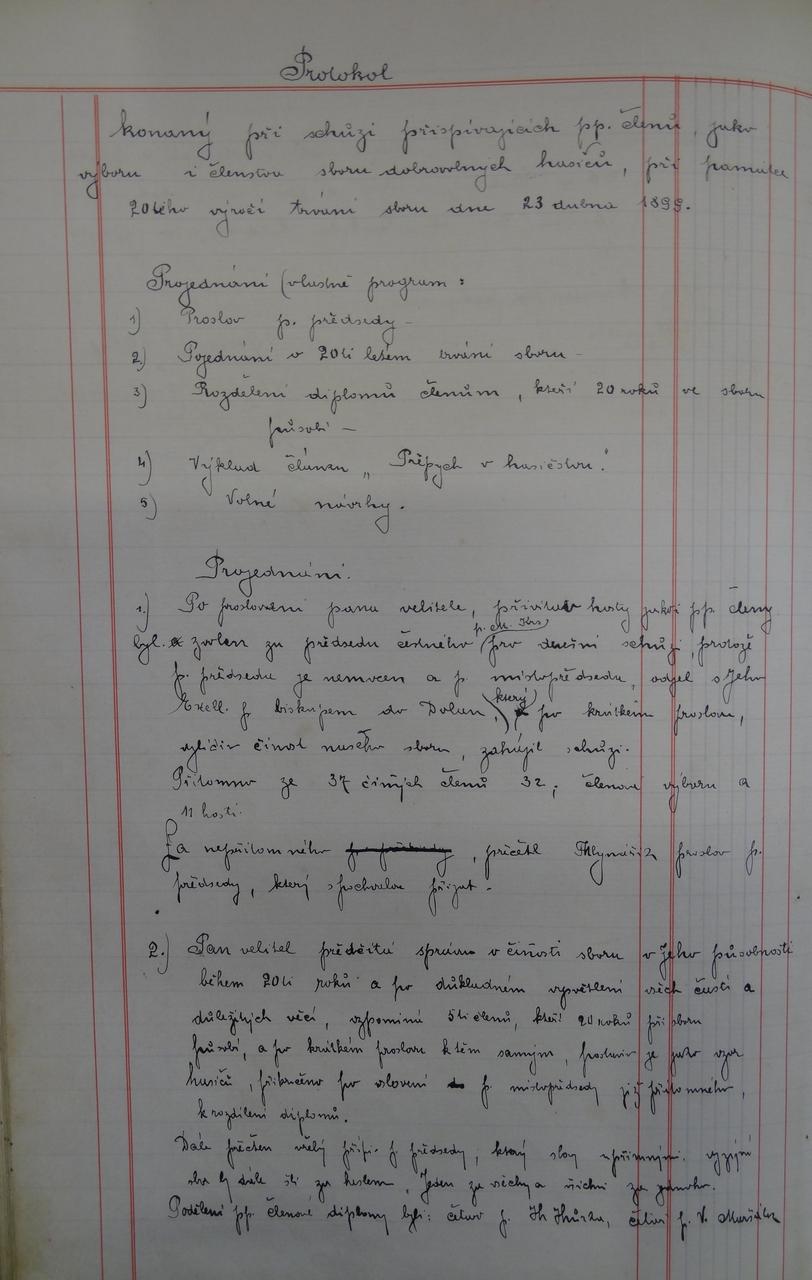 Protokol
konaný při schůzi přispívajících pp. členů, jako
výboru i členstva sboru dobrovolnych hasičů, při památce
20tého výročí trvání sboru dne 23 dubna 1899.
Projednání (vlastně program :
1) Proslov p. předsedy –
2) Pojednání o 20ti letém trvání sboru –
3) Rozdělení diplomů členům, kteří 20 roků ve sboru
působí –
4) Výklad článku „Přepych v hasičstvu."
5) Volné návrhy.
Projednání.
1.) Po proslovení pana velitele, přivítav hosty jakož pp. členy
p. M. Krs
byl zvolen za předsedu čestného pro dnešní schůzi, protože
p. předseda je nemocen a p. místopředseda, odjel s Jeho
který
Excell. p biskupem do Dolan, po krátkém proslovu,
vylíčiv činost našeho sboru, zahájil schůzi.
Přítomno ze 37 činých členů 32, členové výboru a
11 hostí.
Za nepřítomného , přečetl Mlynařík proslov p.
předsedy, který s pochvalou přijat.
2.) Pan velitel předčítá správu o čiňosti sboru v Jeho působnosti
během 20ti roků a po důkladném vysvětlení všech částí a
důležitých věcí, vzpomíná 5ti členů, kteří 20 roků při sboru
působí, a po krátkém proslovu k těm samým, postaviv je jako vzor
hasičů, přikročeno po oslovení p. místopředsedy již přítomného,
k rozdílení diplomů.
Dále přečten vřelý přípi. p předsedy, který slovy upřímnými vyzývá
aby dále šli za heslem, Jeden za všechny a všichni za jednoho.
Podělení pp. členové diplomy byli: četař p. , četař p. V. Maršálek